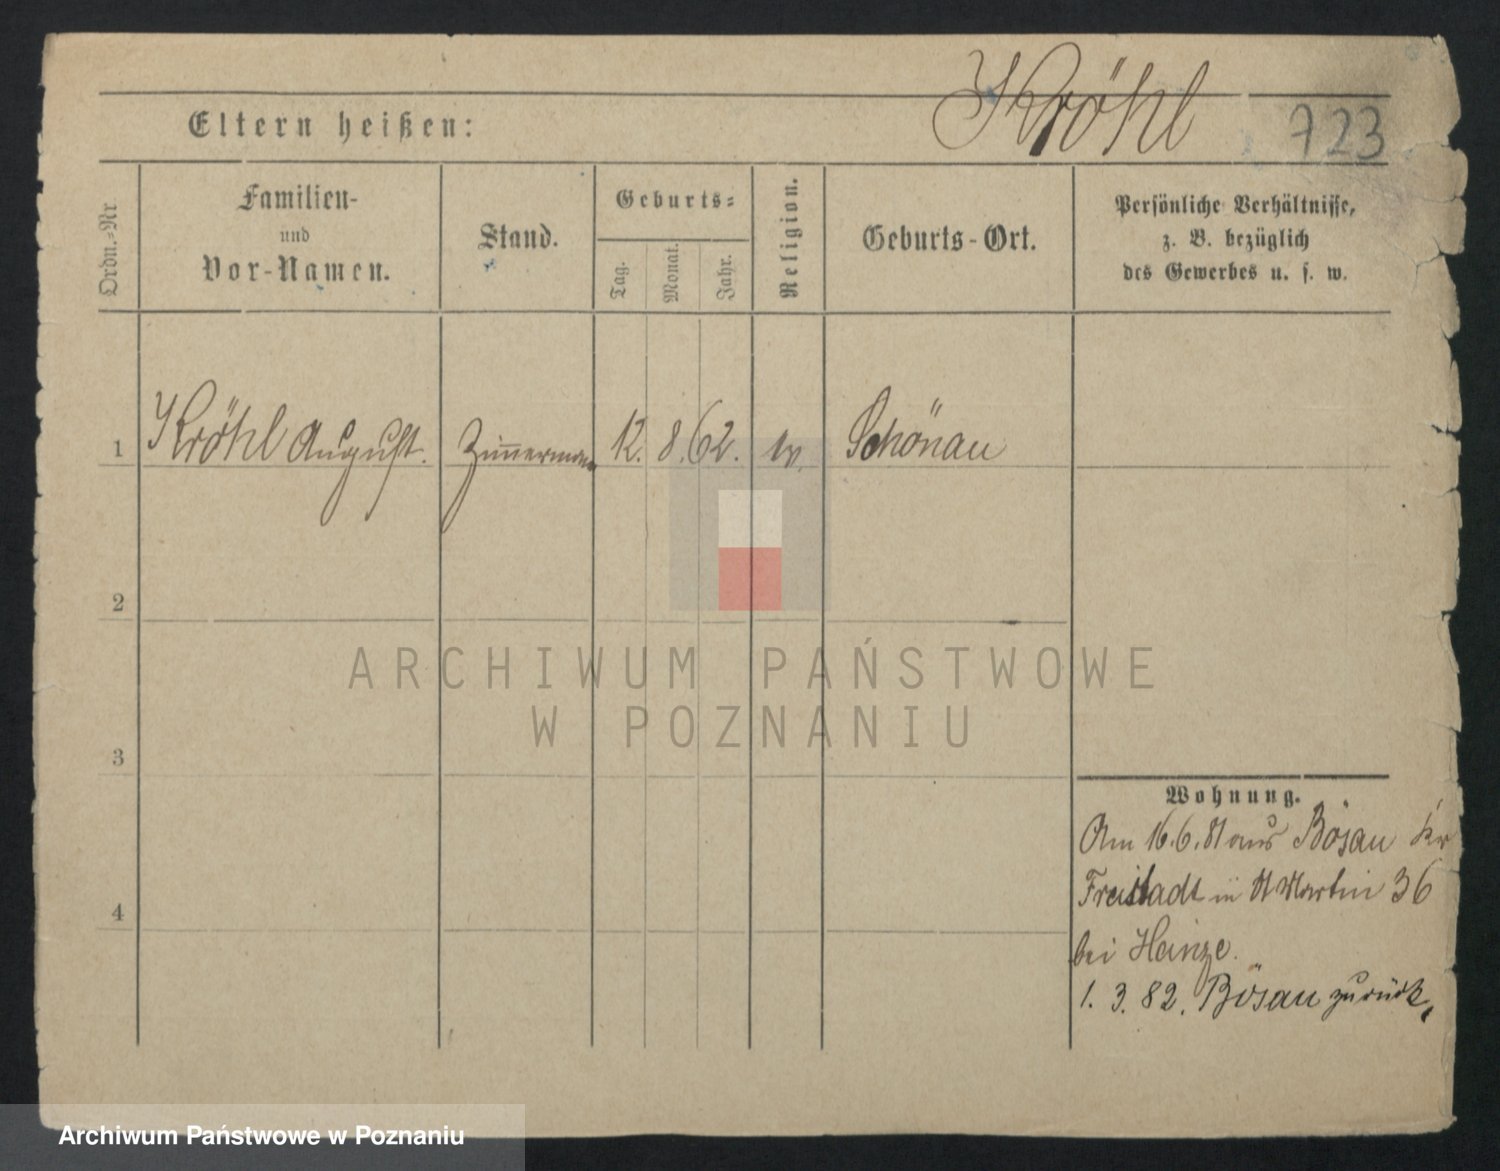 Kröhl
723
Eltern heißen:
Ordn.-Nr
Familien-
und
Vor-Namen.
Stand.
Geburts-
Tag.
Monat.
Jahr.
Religion.
Geburts-Ort.
Persönliche Verhältnisse,
z. B. bezüglich
des Gewerbes u. s. w.
1 Kröhl August. Zimmermann 12. 8. 62. Schönau
2
3
4
Wohnung.
Am 16.6.81 aus Bösau Kr
Freistadt in St Martin 36
bei Heinze.
1. 3. 82. Bösau zurück.
ARCHIWUM PAŃSTWOWE
W POZNANIU
Archiwum Państwowe w Poznaniu